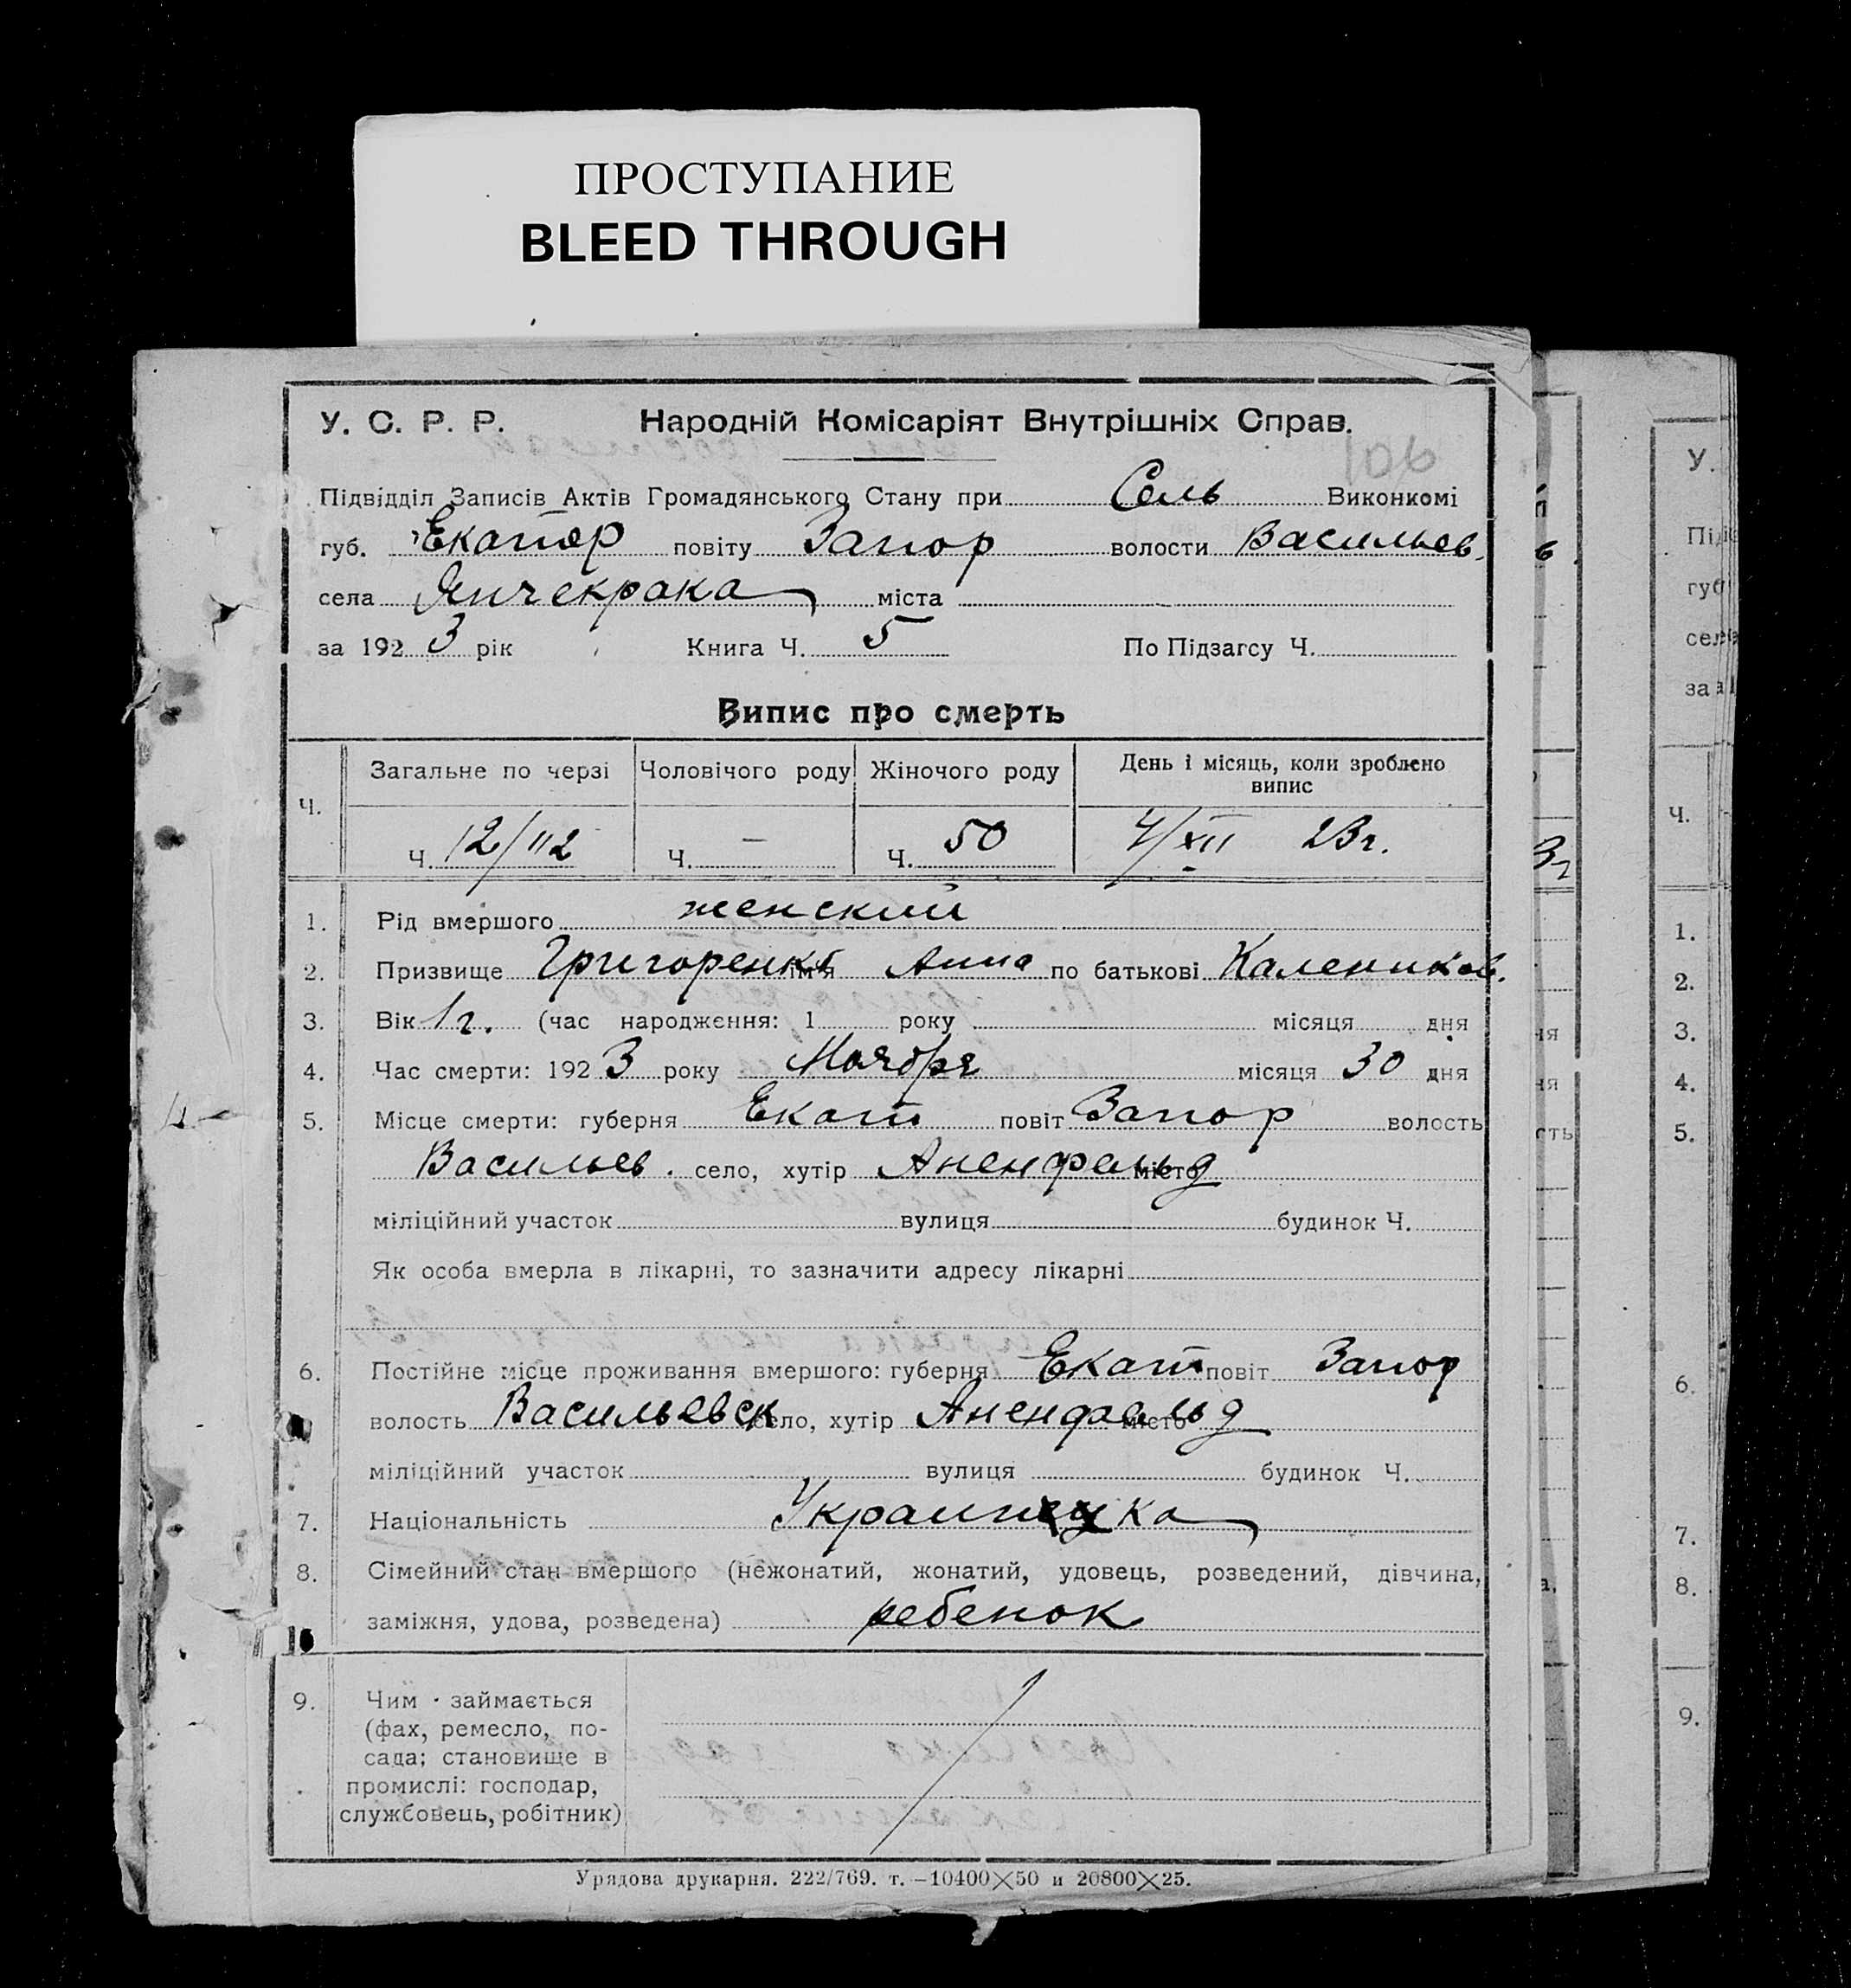 ПРОСТУПАНИЕ
BLEED THROUGH
106
У. С. Р. Р. Народній Комісаріят Внутрішніх Справ.
Підвідділ Записів Актів Громадянського Стану при Сель Виконкомі
губ. Екатер повіту Запор волости Васильев.
села Янчекрака міста
за 1923 рік Книга Ч. 5 По Підзагсу Ч.
Випис про смерть
Ч. Загальне по черзі Чоловічого роду Жіночого роду День і місяць, коли зроблено випис
Ч. 12/112 Ч. — Ч. 50 4/XII 23г.
1. Рід вмершого женский
2. Призвище Григоренко ім'я Анна по батькові Калеников.
3. Вік 1г. (час народження: 1 року місяця дня
4. Час смерти: 1923 року Ноября місяця 30 дня
5. Місце смерти: губерня Екат повіт Запор волость
Васильев. село, хутір Аненфельд місто
міліційний участок вулиця будинок Ч.
Як особа вмерла в лікарні, то зазначити адресу лікарні
6. Постійне місце проживання вмершого: губерня Екат повіт Запор
волость Васильевск село, хутір Аненфельд місто
міліційний участок вулиця будинок Ч.
7. Національність Украинка
8. Сімейний стан вмершого (нежонатий, жонатий, удовець, розведений, дівчина,
заміжня, удова, розведена) ребенок
9. Чим займається
(фах, ремесло, по-
сада; становище в
промислі: господар,
службовець, робітник)
Урядова друкарня. 222/769. т. –10400×50 и 20800×25.